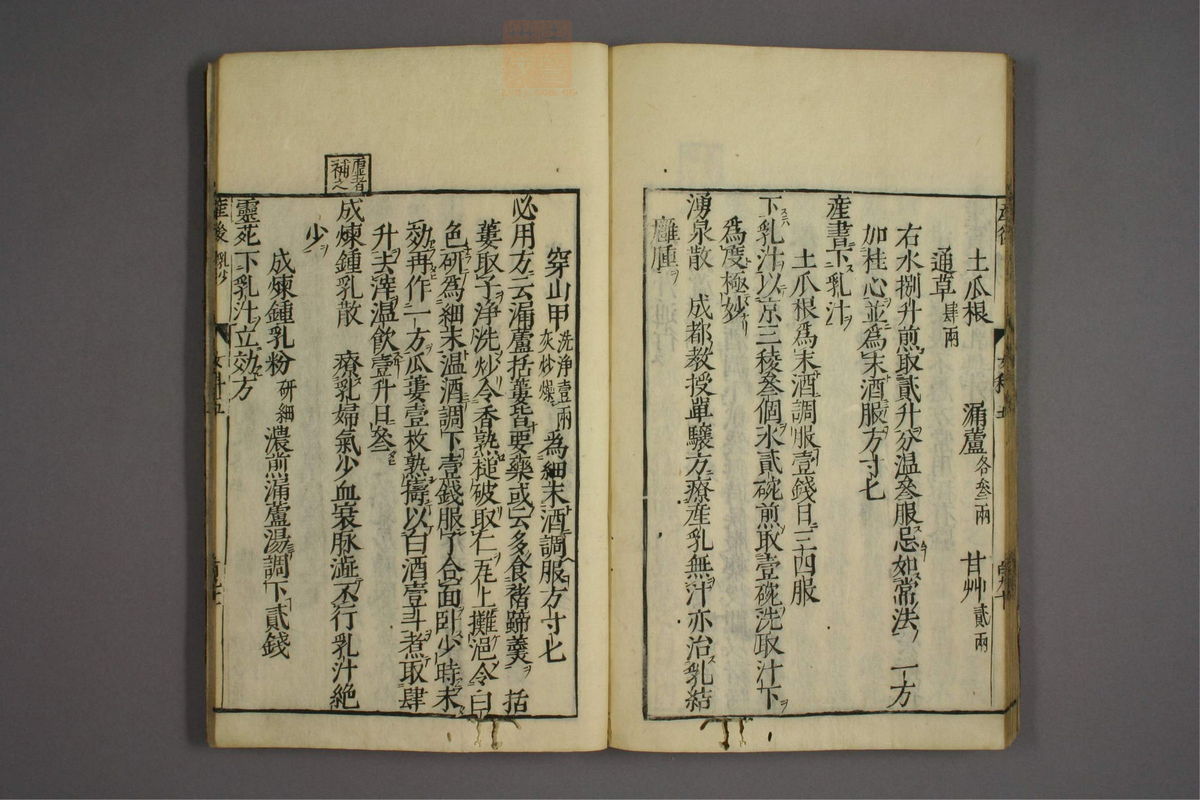 土瓜根　漏蘆各叄兩　甘艸貳兩
通草肆兩
右水捌升煎取貳升分温叄服忌如常法一方
加桂心並爲末酒服方寸匕
産書下乳汁
土瓜根爲末酒調服壹錢日三四服
下乳汁以京三稜叄個水貳碗煎取壹碗洗取汁下
爲度極妙
湧泉散　成都教授單驤方療産乳無汁亦治乳結
癰腫
穿山甲洗淨壹兩灰炒燥爲細末酒調服方寸匕
必用方云漏蘆括蔞皆要藥或云多食猪蹄羹　括
蔞取子淨洗炒令香熟槌破取仁瓦上攤浥令白
色研爲細末温酒調下壹錢服了合面卧少時未
効再作一方瓜蔞壹枚熟擣以白酒壹斗煮取肆
升去滓温飲壹升日叄
成煉鍾乳散　療乳婦氣少血衰脉澁不行乳汁絶
少
成煉鍾乳粉研細濃煎漏蘆湯調下貳錢
靈苑下乳汁立効方
補之
産後